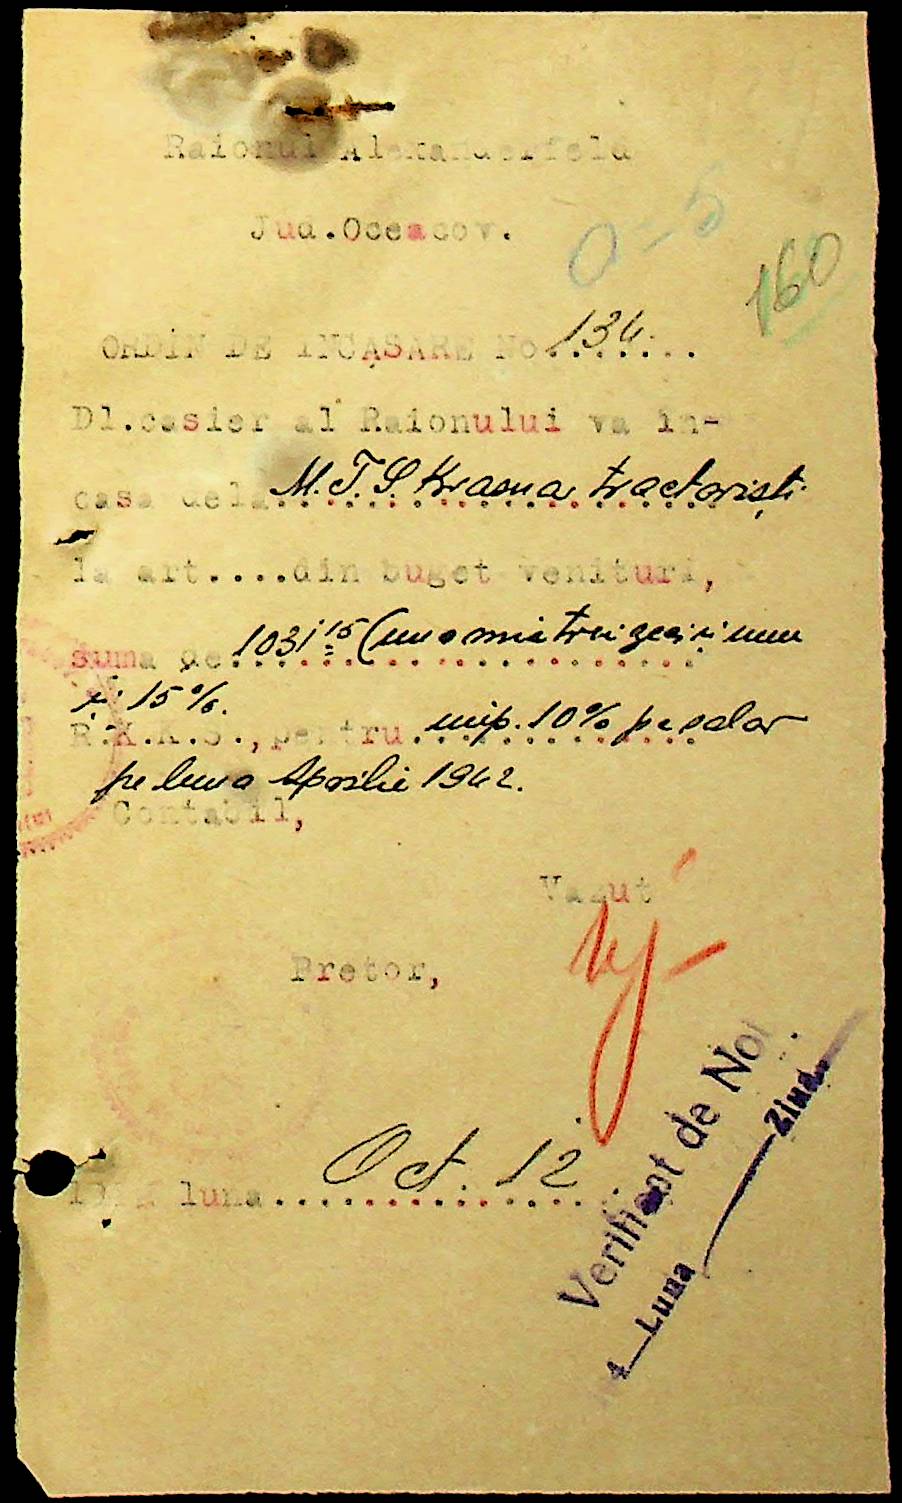 Raionul Alexanderfeld
Jud.Oceacov.
0-5
160
ORDIN DE INCASARE No 134.......
Dl.casier al Raionului va in-
casa dela M.T.S Krasna tractoriști
la art....din buget venituri,
suma de 1031 15 (una mie treizeci și unu
și 15%.
R.K.K.S., pentru imp. 10% pe salar
pe luna Aprilie 1942.
Contabil,
Vazut
Pretor,
luna Oct. 12
Verificat de Noi
4 Luna Ziua